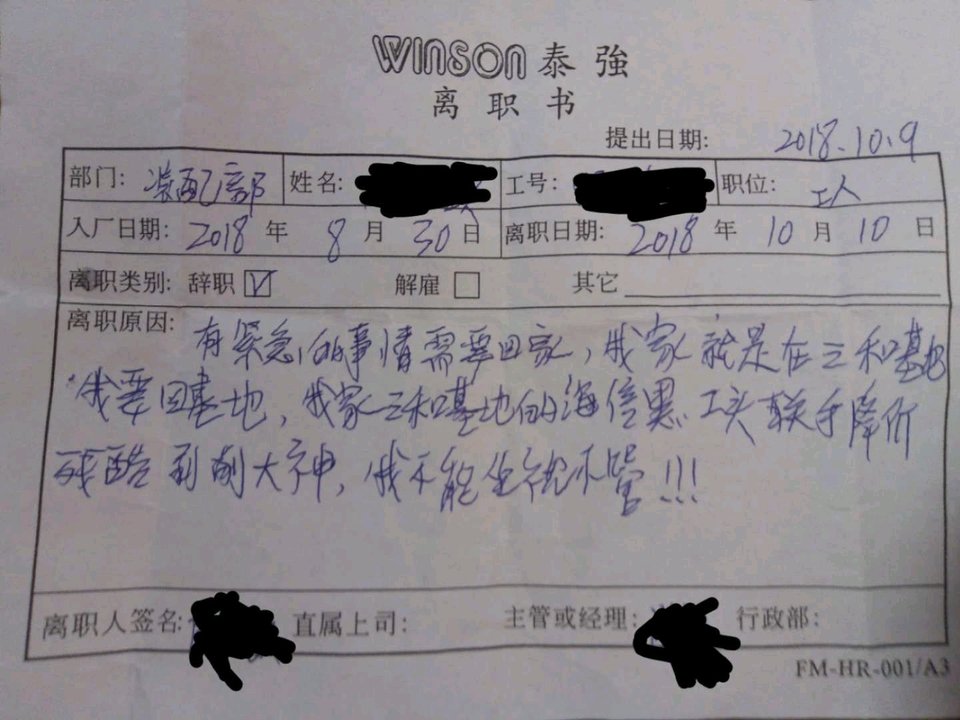 WINSON 泰強
离职书
提出日期: 2018.10.9
部门: 装配部 姓名: 工号: 职位: 工人
入厂日期: 2018 年 8 月 30 日 离职日期: 2018 年 10 月 10 日
离职类别: 辞职 解雇 其它
离职原因: 有紧急的事情需要回家,我家就是在三和基地
我要回基地,我家三和基地的海信黑工头联手降价
残酷剥削大神,我不能坐视不管!!!
离职人签名: 直属上司: 主管或经理: 行政部:
FM-HR-001/A3